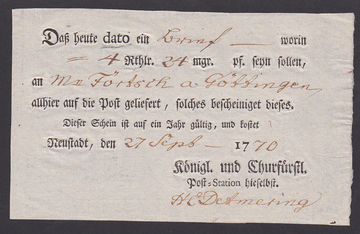 Daß heute dato ein Brief — worin
= 4 Rthlr. 24 mgr. pf. seyn sollen,
an Mr Förtsch a Göttingen
allhier auf die Post geliefert, solches bescheiniget dieses.
Dieser Schein ist auf ein Jahr gültig, und kostet
Neustadt, den 27 Sept — 1770
Königl. und Churfürstl.
Post-Station hieselbst.
HCDetmering